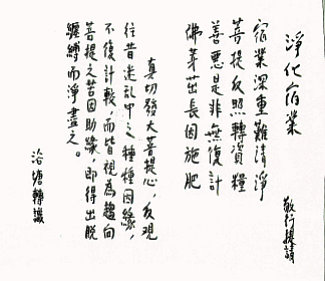 淨化宿業
敬行提請
宿業深重難清淨
菩提反照轉資糧
善惡是非無復計
佛芽茁長因施肥
真切發大菩提心，反觀
往昔迷亂中之種種因緣，
不復計較，而皆視為趨向
菩提之善因助緣，即得出脫
纏縛而淨盡之。
浴塘轉識